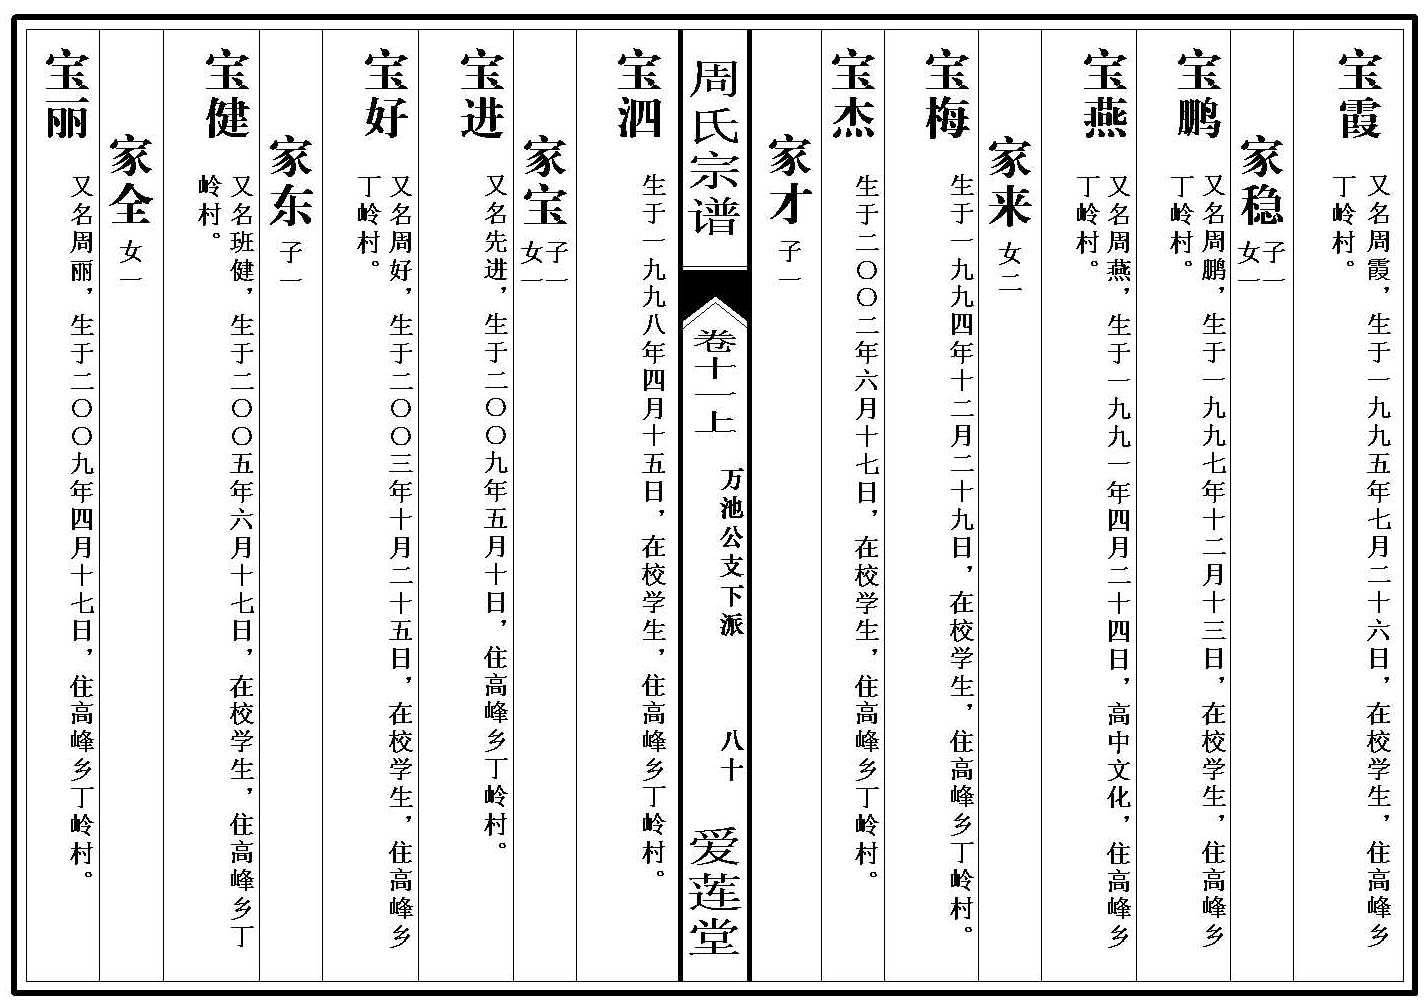 宝霞
又名周霞，生于一九九五年七月二十六日，在校学生，住高峰乡
丁岭村。
家稳
子一
女一
宝鹏
又名周鹏，生于一九九七年十二月十三日，在校学生，住高峰乡
丁岭村。
宝燕
又名周燕，生于一九九一年四月二十四日，高中文化，住高峰乡
丁岭村。
家来
女二
宝梅
生于一九九四年十二月二十九日，在校学生，住高峰乡丁岭村。
宝杰
生于二〇〇二年六月十七日，在校学生，住高峰乡丁岭村。
家才
子一
周氏宗谱
卷十一上
万池公支下派
八十
爱莲堂
宝泗
生于一九九八年四月十五日，在校学生，住高峰乡丁岭村。
家宝
子一
女一
宝进
又名先进，生于二〇〇九年五月十日，住高峰乡丁岭村。
宝好
又名周好，生于二〇〇三年十月二十五日，在校学生，住高峰乡
丁岭村。
家东
子一
宝健
又名班健，生于二〇〇五年六月十七日，在校学生，住高峰乡丁
岭村。
家全
女一
宝丽
又名周丽，生于二〇〇九年四月十七日，住高峰乡丁岭村。